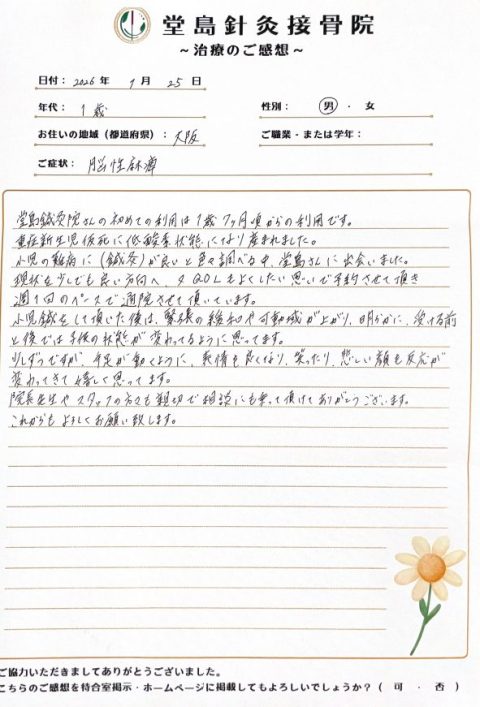 堂島針灸接骨院
~治療のご感想~
日付: 2026年 1月 25日
年代: 1歳 性別: 男・女
お住いの地域(都道府県): 大阪 ご職業・または学年:
ご症状: 脳性麻痺
堂島鍼灸院さんの初めての利用は1歳7ヶ月頃からの利用です。
重症新生児仮死に低酸素状態になり産まれました。
小児の難病に(鍼灸)が良いと色々調べる中、堂島さんに出会いました。
現状を少しでも良い方向へ、QOLをよくしたい思いで予約させて頂き
週1回のペースで通院させて頂いています。
小児鍼をして頂いた後は、緊張の緩和や可動域が上がり、明らかに、受ける前
と後では手後の状態が変わってるように思ってます。
少しずつですが、手足が動くように、表情も良くなり、笑ったり、悲しい顔も反応が
変わってきて嬉しく思ってます。
院長先生やスタッフの方々も親切で相談にも乗って頂けてありがとうございます。
これからもよろしくお願い致します。
ご協力いただきましてありがとうございました。
こちらのご感想を待合室掲示・ホームページに掲載してもよろしいでしょうか?( 可 ・ 否 )